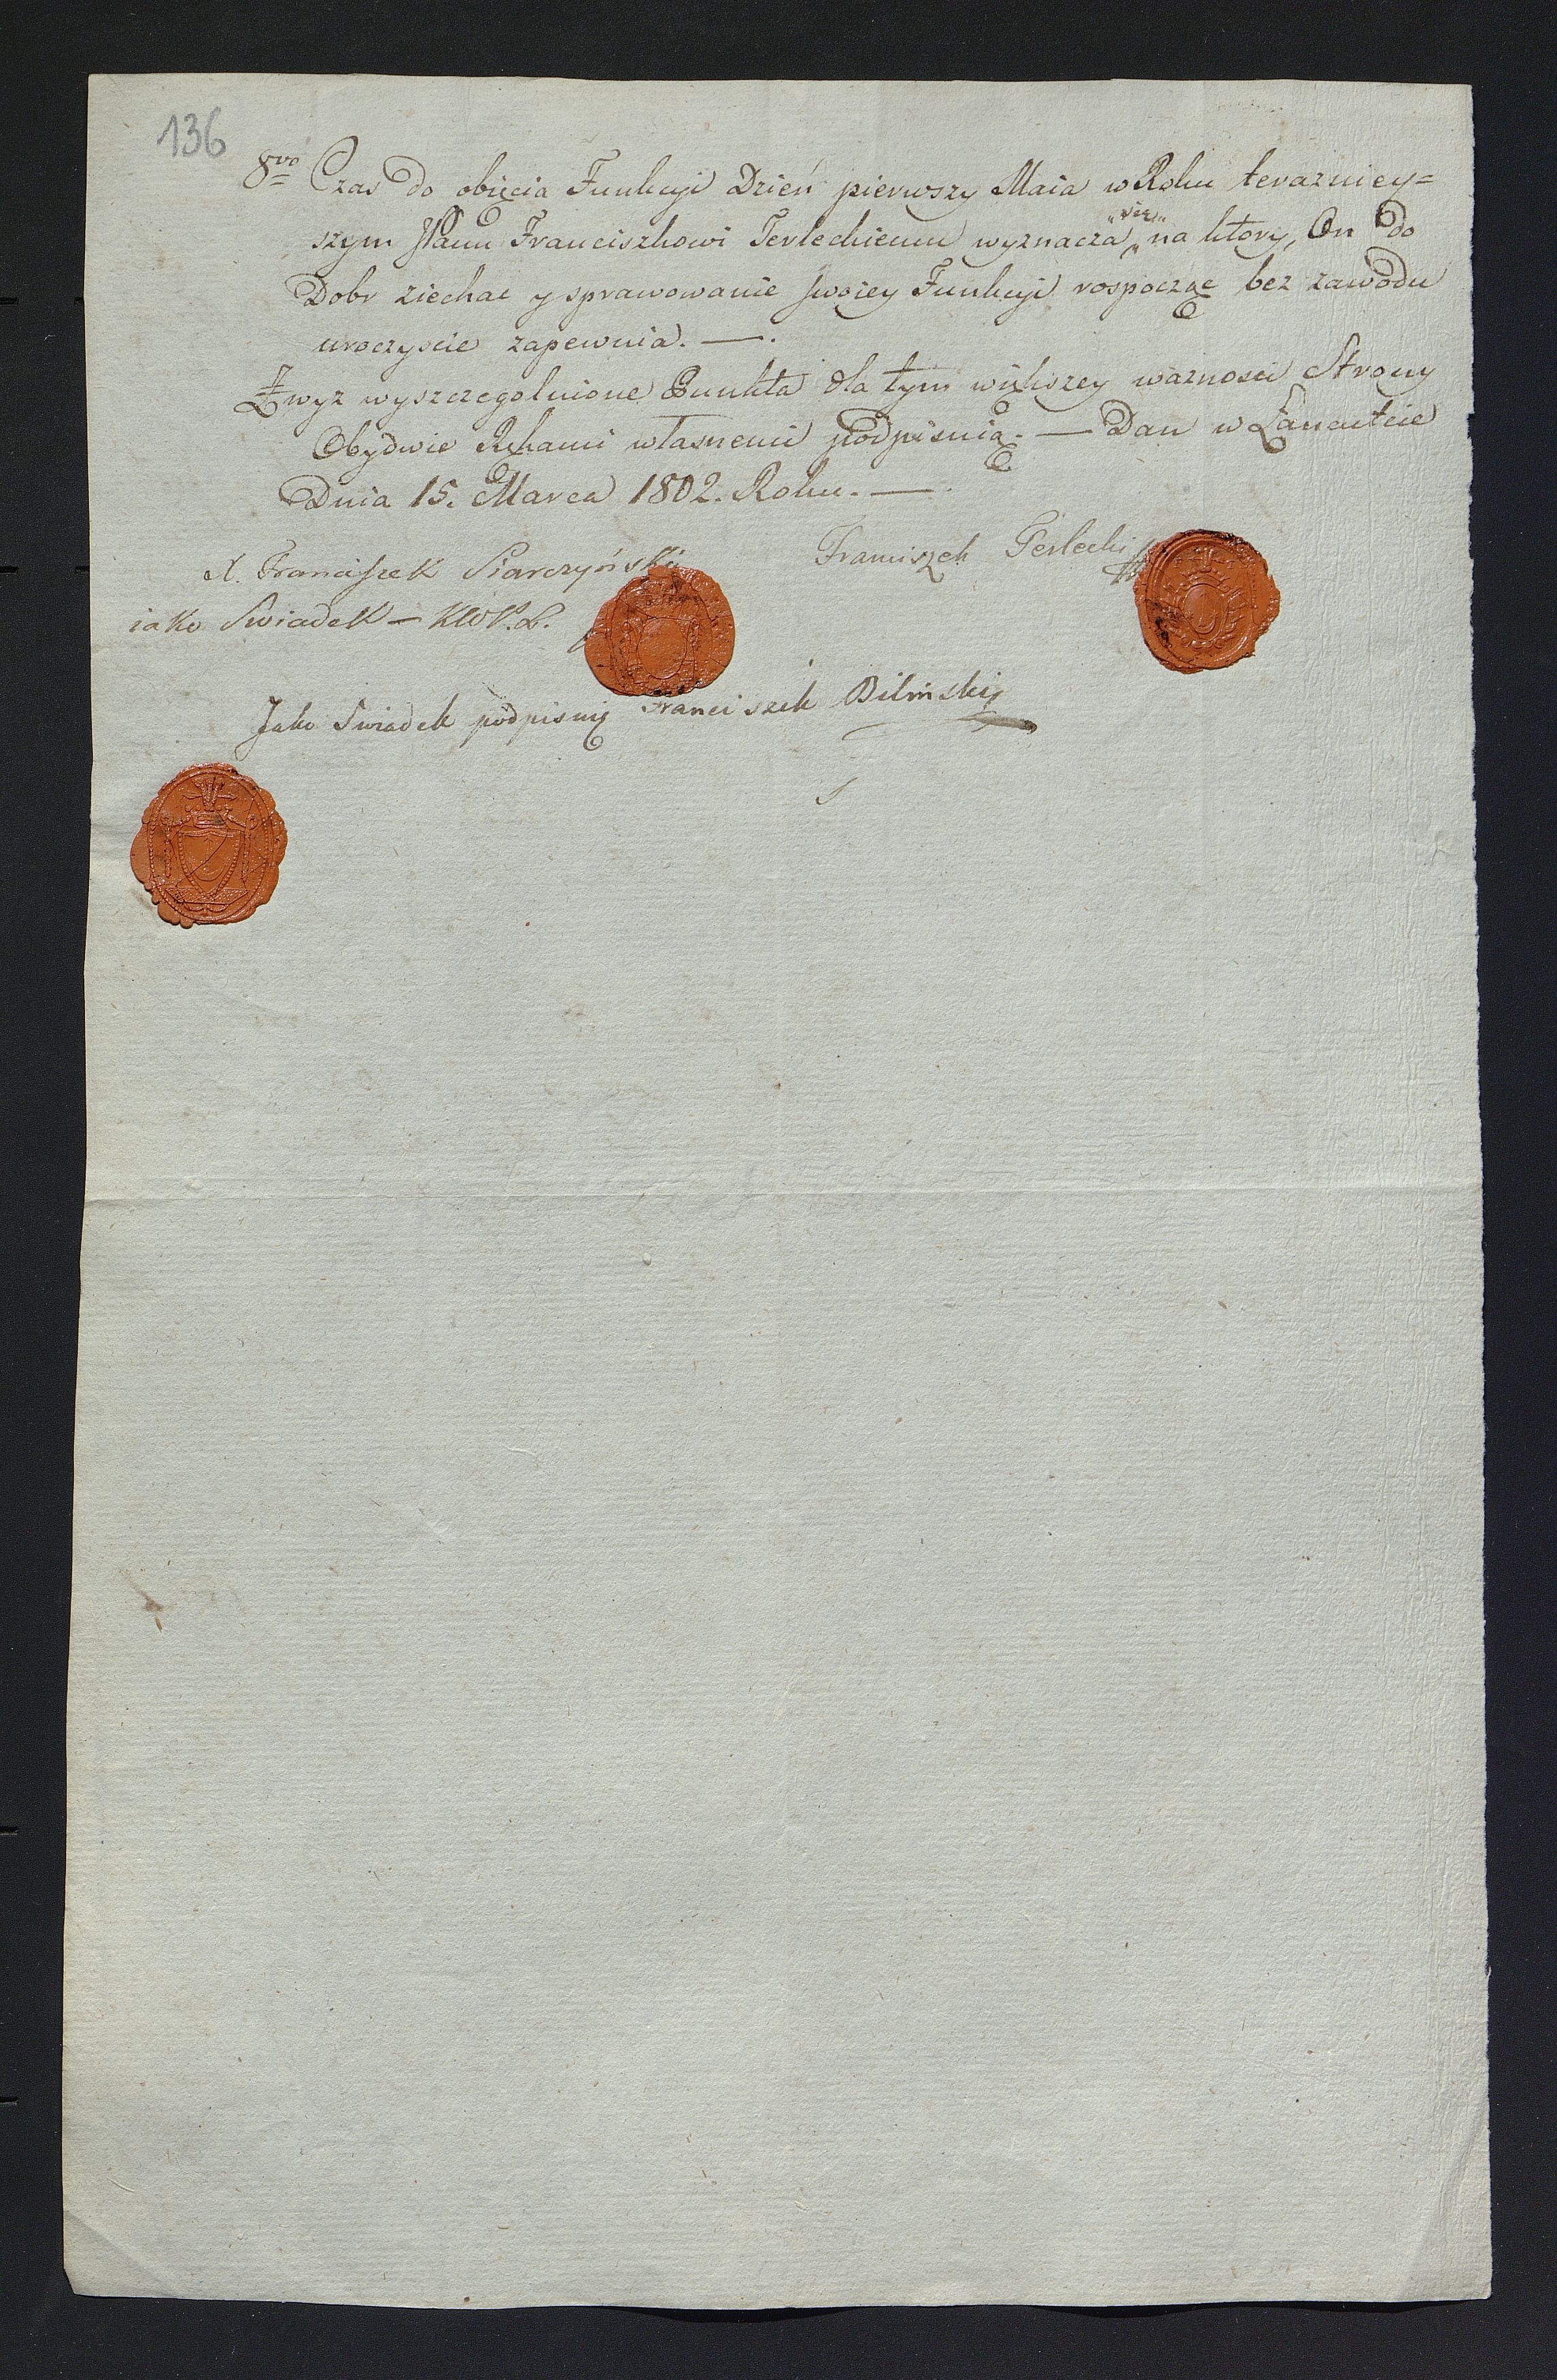 136
8vo Czas do obięcia Funkcyi Dzień pierwszy Maia w Roku terazniey=
szym JPanu Franciszkowi Terleckiemu wyznacza „się„ na ktory, On do
Dobr ziechać y sprawowanie swoiey Funkcyi rospocząc bez zawodu
uroczyscie zapewnia. —.
Zwyz wyszczegolnione Punkta dla tym większey waznosci Strony
Obydwie Rękami własnemi podpisuią. — Dan w Łancutcie
Dnia 15. Marca 1802. Roku. — .
X. Franciszek Siarczyński
Franciszek Terlecki
iako Swiadek —
Jako Swiadek podpisuię Franciszek Biliński